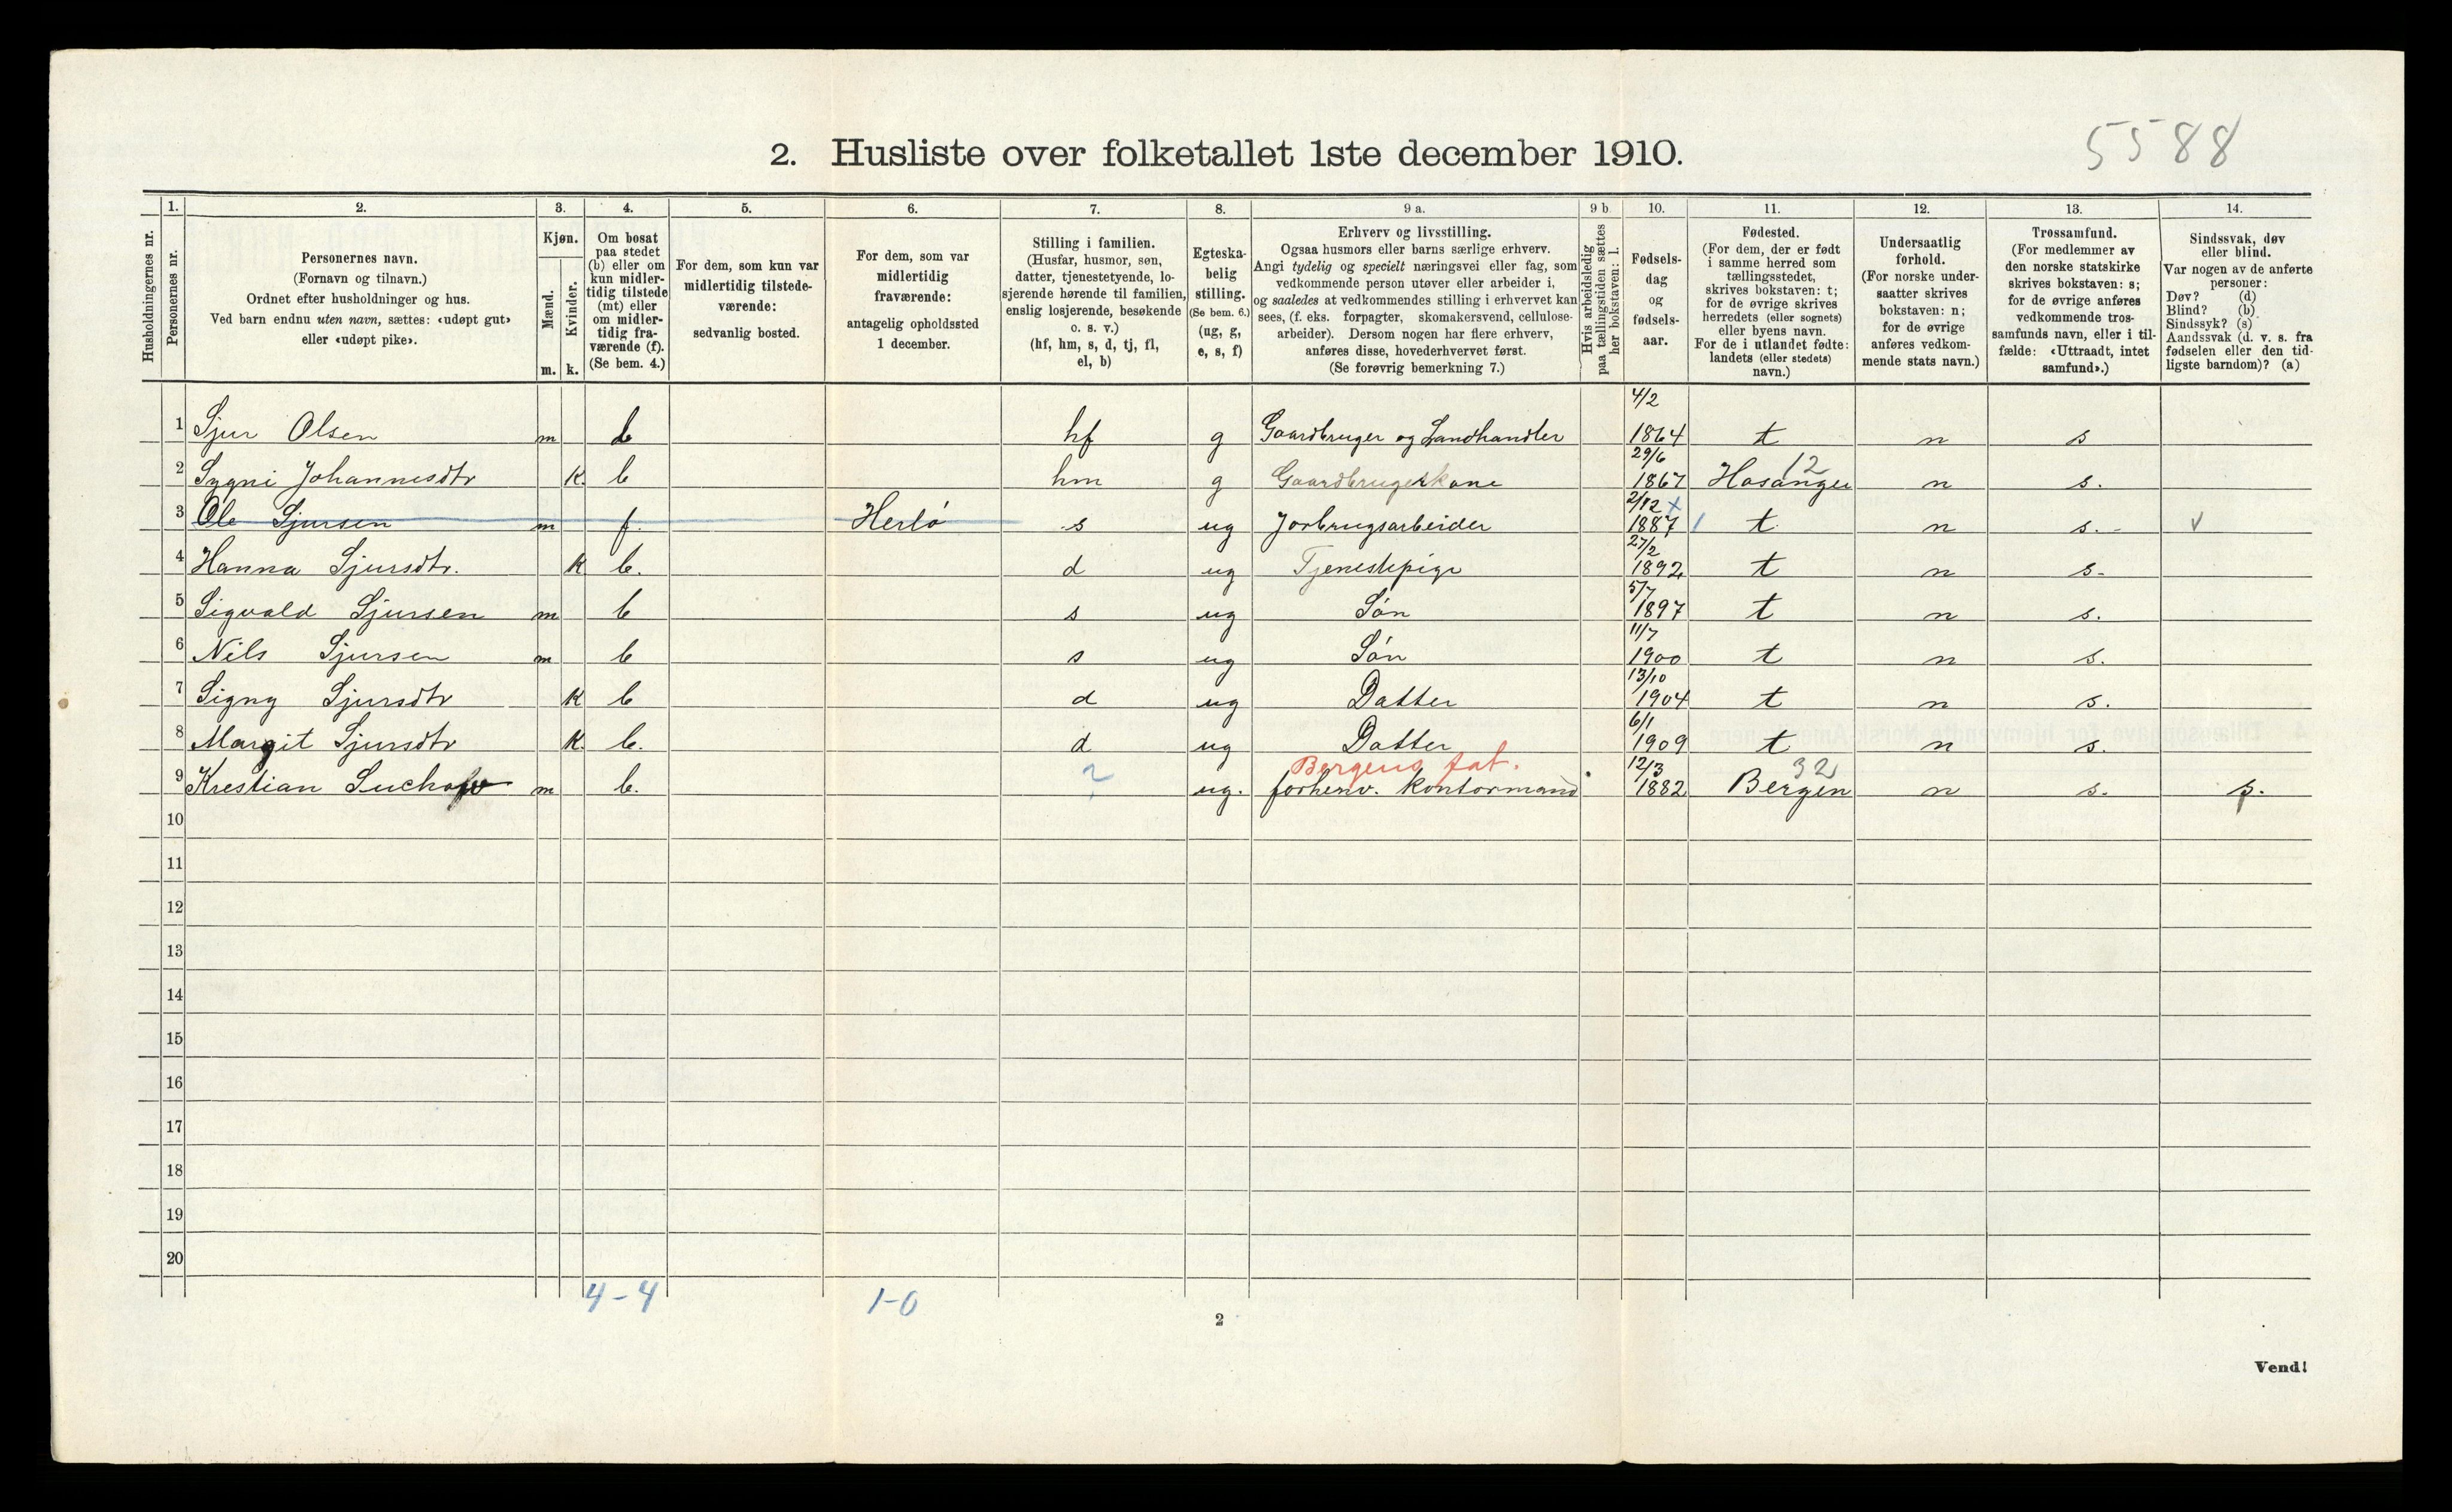 5588
2. Husliste over folketallet 1ste december 1910.
Husholdningernes nr.
1.
Personernes nr.
2.
Personernes navn.
(Fornavn og tilnavn.)
Ordnet efter husholdninger og hus.
Ved barn endnu uten navn, sættes: «udøpt gut»
eller «udøpt pike».
3.
Kjøn.
Mænd.
Kvinder.
m. k.
4.
Om bosat
paa stedet
(b) eller om
kun midler-
tidig tilstede
(mt) eller
om midler-
tidig fra-
værende (f).
(Se bem. 4.)
5.
For dem, som kun var
midlertidig tilstede-
værende:
sedvanlig bosted.
6.
For dem, som var
midlertidig
fraværende:
antagelig opholdssted
1 december.
7.
Stilling i familien.
(Husfar, husmor, søn,
datter, tjenestetyende, lo-
sjerende hørende til familien,
enslig losjerende, besøkende
o. s. v.)
(hf, hm, s, d, tj, fl,
el, b)
8.
Egteska-
belig
stilling.
(Se bem. 6.)
(ug, g,
e, s, f)
9 a.
Erhverv og livsstilling.
Ogsaa husmors eller barns særlige erhverv.
Angi tydelig og specielt næringsvei eller fag, som
vedkommende person utøver eller arbeider i,
og saaledes at vedkommendes stilling i erhvervet kan
sees, (f. eks. forpagter, skomakersvend, cellulose-
arbeider). Dersom nogen har flere erhverv,
anføres disse, hovederhvervet først.
(Se forøvrig bemerkning 7.)
9 b
Hvis arbeidsledig
paa tællingstiden sættes
her bokstaven: l.
10.
Fødsels-
dag
og
fødsels-
aar.
11.
Fødested.
(For dem, der er født
i samme herred som
tællingsstedet,
skrives bokstaven: t;
for de øvrige skrives
herredets (eller sognets)
eller byens navn.
For de i utlandet fødte:
landets (eller stedets)
navn.)
12.
Undersaatlig
forhold.
(For norske under-
saatter skrives
bokstaven: n;
for de øvrige
anføres vedkom-
mende stats navn.)
13.
Trossamfund.
(For medlemmer av
den norske statskirke
skrives bokstaven: s;
for de øvrige anføres
vedkommende tros-
samfunds navn, eller i til-
fælde: «Uttraadt, intet
samfund».)
14.
Sindssvak, døv
eller blind.
Var nogen av de anførte
personer:
Døv? (d)
Blind? (b)
Sindssyk? (s)
Aandssvak (d. v. s. fra
fødselen eller den tid-
ligste barndom)? (a)
1 Sjur Olsen m b hf g Gaardbruger og Landhandler 4/2 1864 t n s
2 Sygni Johannesdtr K. b hm g Gaardbrugerkone 29/6 1867 Hosanger 12 n s.
3 Ole Sjursen m f. Herlö s ug Jorbrugsarbeider 2/12 x 1887 1 t n s. v
4 Hanna Sjursdtr. K b. d ug Tjenestepige 27/2 1892 t n s.
5 Sigvald Sjursen m b s ug Sön 5/7 1897 t n s.
6 Nils Sjursen m b s ug Sön 11/7 1900 t n s.
7 Signy Sjursdtr K b d ug Datter 13/10 1904 t n s.
8 Margit Sjursdtr K. b. d ug Datter 6/1 1909 t n s.
Bergens fat.
9 Krestian m b. ? ug. forhenv. kontormand 12/3 1882 Bergen 32 n s. s.
10
11
12
13
14
15
16
17
18
19
20
4-4 1-0
2
Vend!